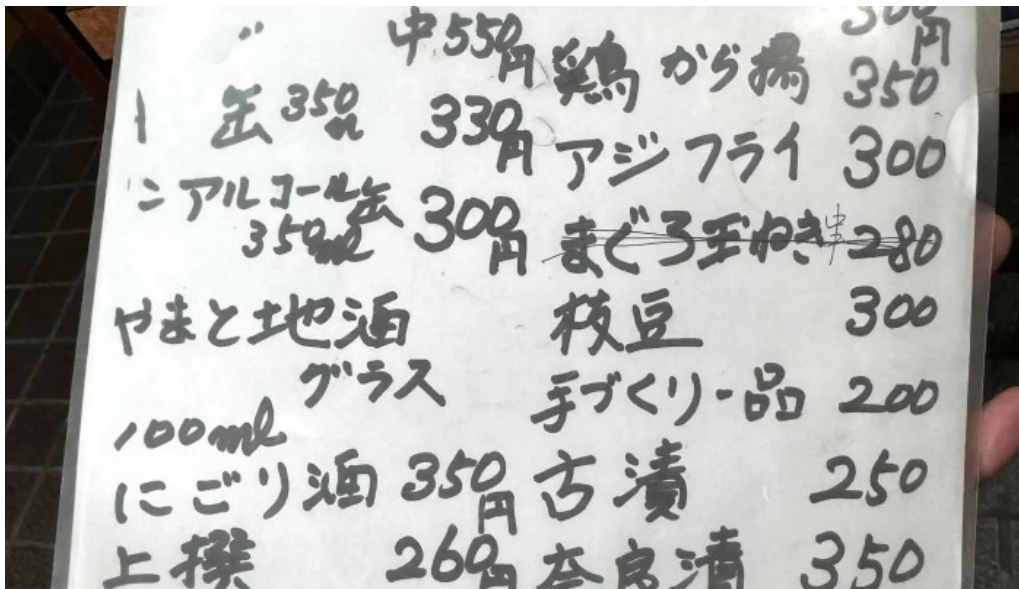 〃 中550円
缶350ml 330円
ニアルコール缶 300円
350ml
やまと地酒
グラス
100ml
にごり酒 350円
上撰 260円
300円
鶏から揚 350
アジフライ 300
まぐろ玉ねぎ串 280
枝豆 300
手づくり一品 200
古漬 250
奈良漬 350